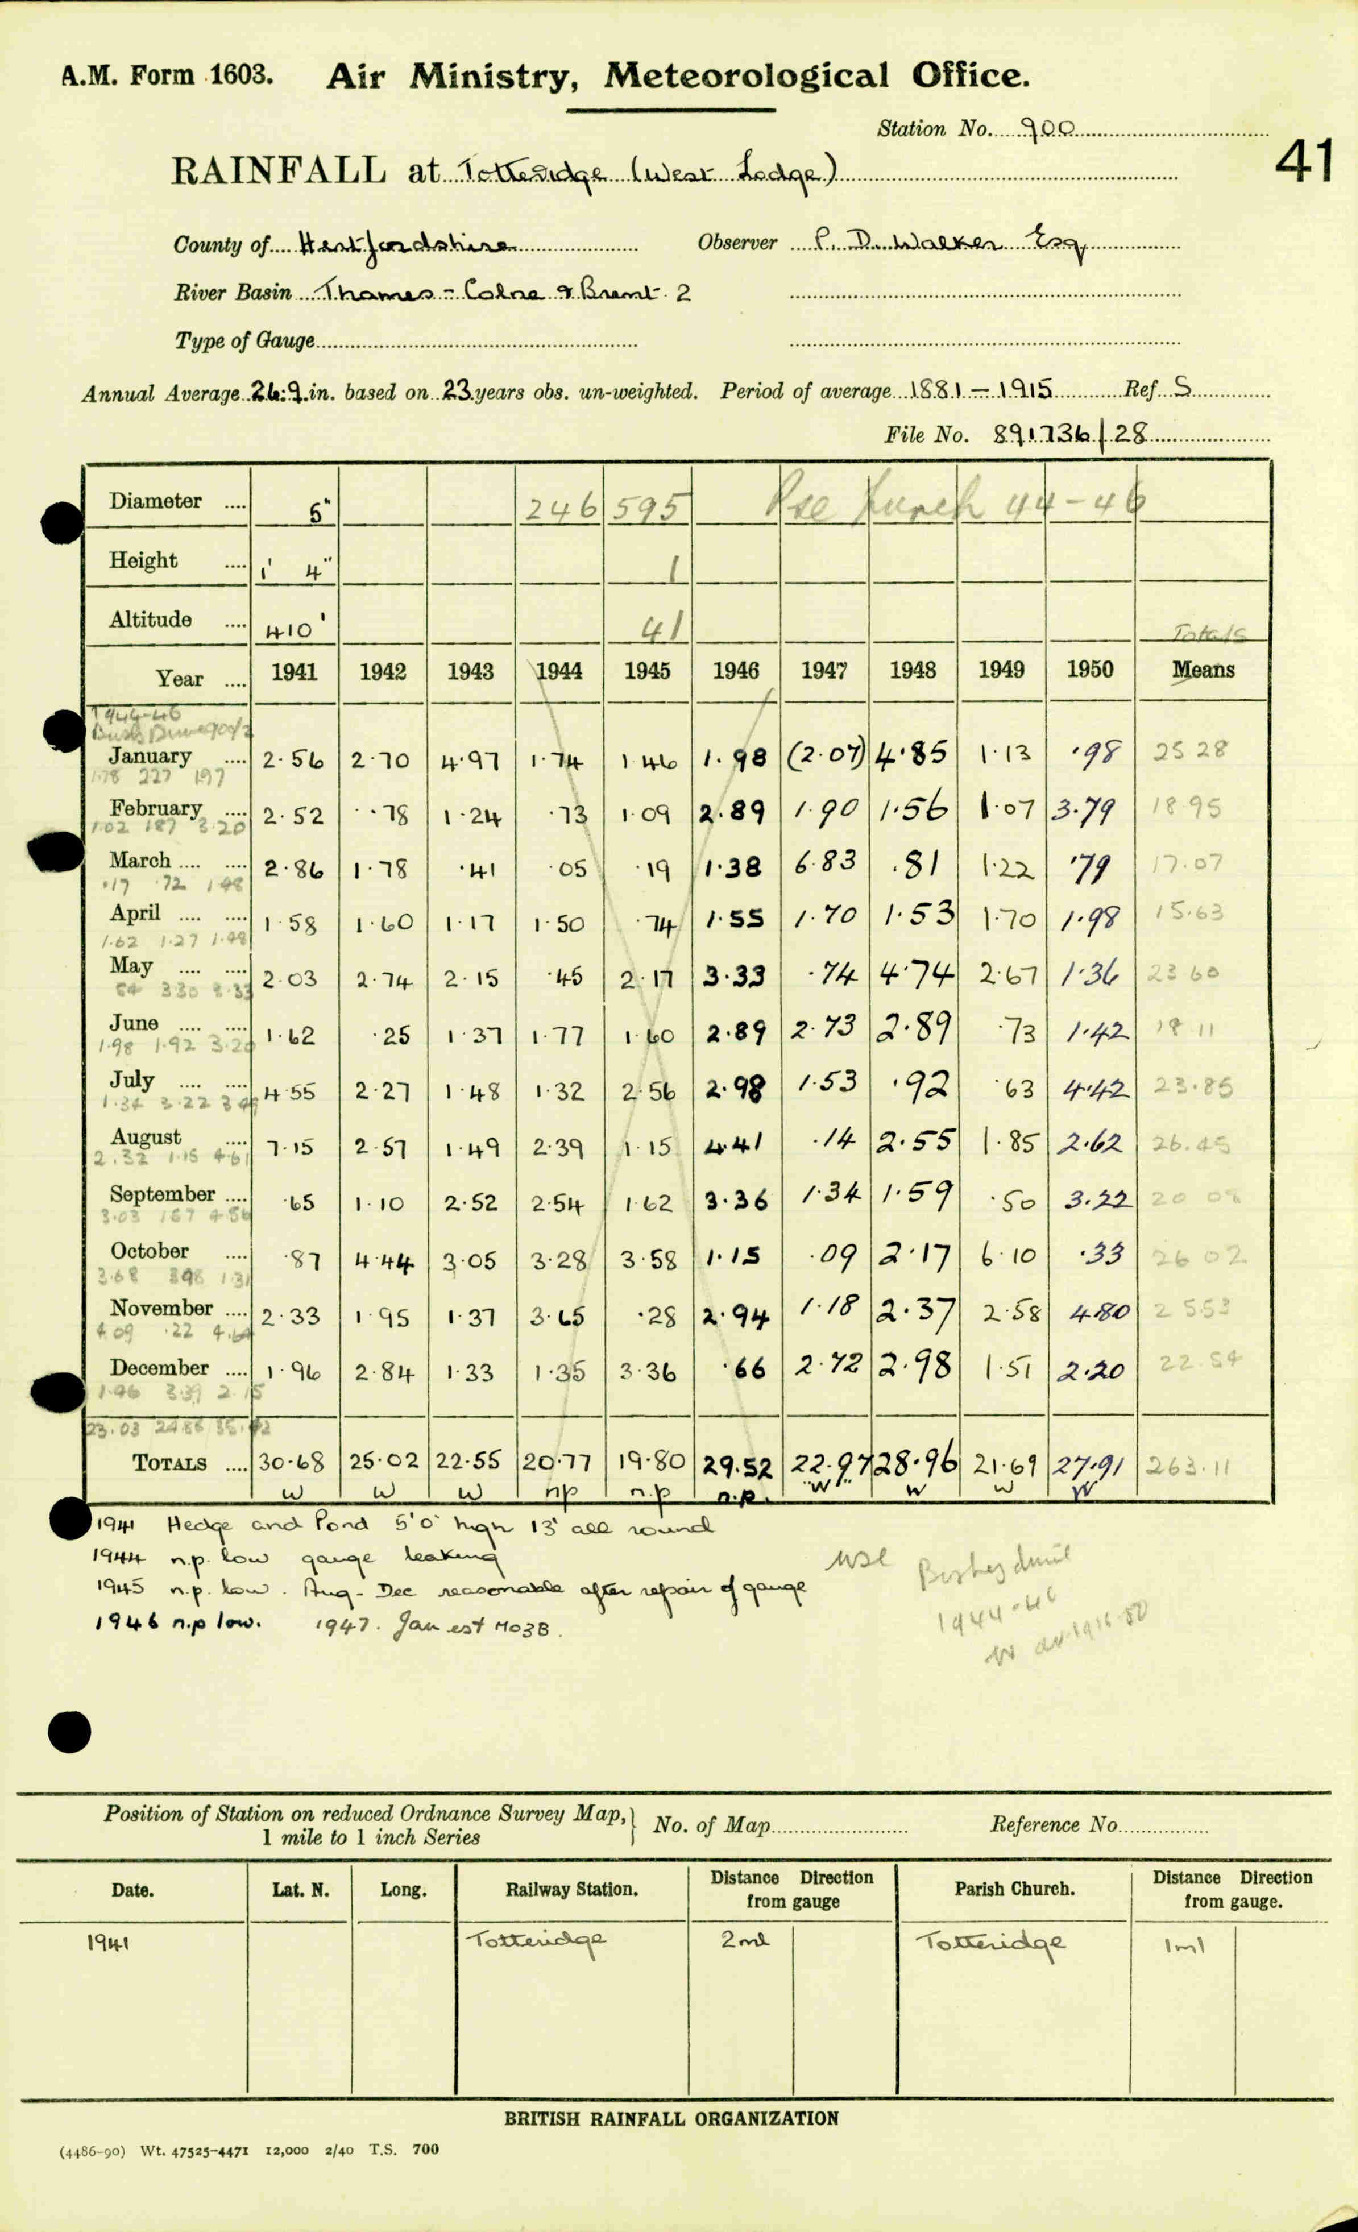 A.M. Form 1603. Air Ministry, Meteorological Office.
Station No. 900
41
RAINFALL at Totteridge (West Lodge)
County of Hertfordshire Observer P. D. Walker Esq
River Basin Thames - Colne & Brent 2
Type of Gauge
Annual Average 26.9 in. based on 23 years obs. un-weighted. Period of average 1881-1915 Ref S
File No. 891736/28
Diameter .... 5" 246 595 44-46
Height .... 1' 4" 1
Altitude .... 410' 41 Totals
Year .... 1941 1942 1943 1944 1945 1946 1947 1948 1949 1950 Means
1944-46
January .... 2.56 2.70 4.97 1.74 1.46 1.98 (2.07) 4.85 1.13 .98 25 28
1.78 227 197
February .... 2.52 .78 1.24 .73 1.09 2.89 1.90 1.56 1.07 3.79 18.95
1.02 187 3.20
March .... .... 2.86 1.78 .41 .05 .19 1.38 6.83 .81 1.22 .79 17.07
.17 .72 1.48
April .... .... 1.58 1.60 1.17 1.50 .74 1.55 1.70 1.53 1.70 1.98 15.63
1.62 1.27 1.48
May .... .... 2.03 2.74 2.15 .45 2.17 3.33 .74 4.74 2.67 1.36 23 60
54 3.30 3.33
June .... .... 1.62 .25 1.37 1.77 1.60 2.89 2.73 2.89 .73 1.42 18 11
1.98 1.92 3.20
July .... .... 4.55 2.27 1.48 1.32 2.56 2.98 1.53 .92 .63 4.42 23.85
1.34 3.22
August .... 7.15 2.57 1.49 2.39 1.15 4.41 .14 2.55 1.85 2.62 26.45
2.32 1.15 4.61
September .... .65 1.10 2.52 2.54 1.62 3.36 1.34 1.59 .50 3.22 20 08
3.03 1.67 4.56
October .... .87 4.44 3.05 3.28 3.58 1.15 .09 2.17 6.10 .33 26 02
3.68 3.98 1.31
November .... 2.33 1.95 1.37 3.65 .28 2.94 1.18 2.37 2.58 4.80 25.53
4.09 .22 4.64
December .... 1.96 2.84 1.33 1.35 3.36 .66 2.72 2.98 1.51 2.20 22.54
1.46 3.39 2.15
23.03
TOTALS .... 30.68 25.02 22.55 20.77 19.80 29.52 22.97 28.96 21.69 27.91 263.11
W W W n.p n.p. n.p. "W" W W W
1941 Hedge and Pond 5'0" high 13' all round
1944 n.p. low gauge leaking
1945 n.p. low. Aug - Dec reasonable after repair of gauge
1946 n.p low. 1947. Jan est MO3B.
use
1944-46
Position of Station on reduced Ordnance Survey Map, 1 mile to 1 inch Series No. of Map Reference No
Date. Lat. N. Long. Railway Station. Distance Direction from gauge Parish Church. Distance Direction from gauge.
1941 Totteridge 2ml Totteridge 1ml
BRITISH RAINFALL ORGANIZATION
(4486-90) Wt. 47525-4471 12,000 2/40 T.S. 700